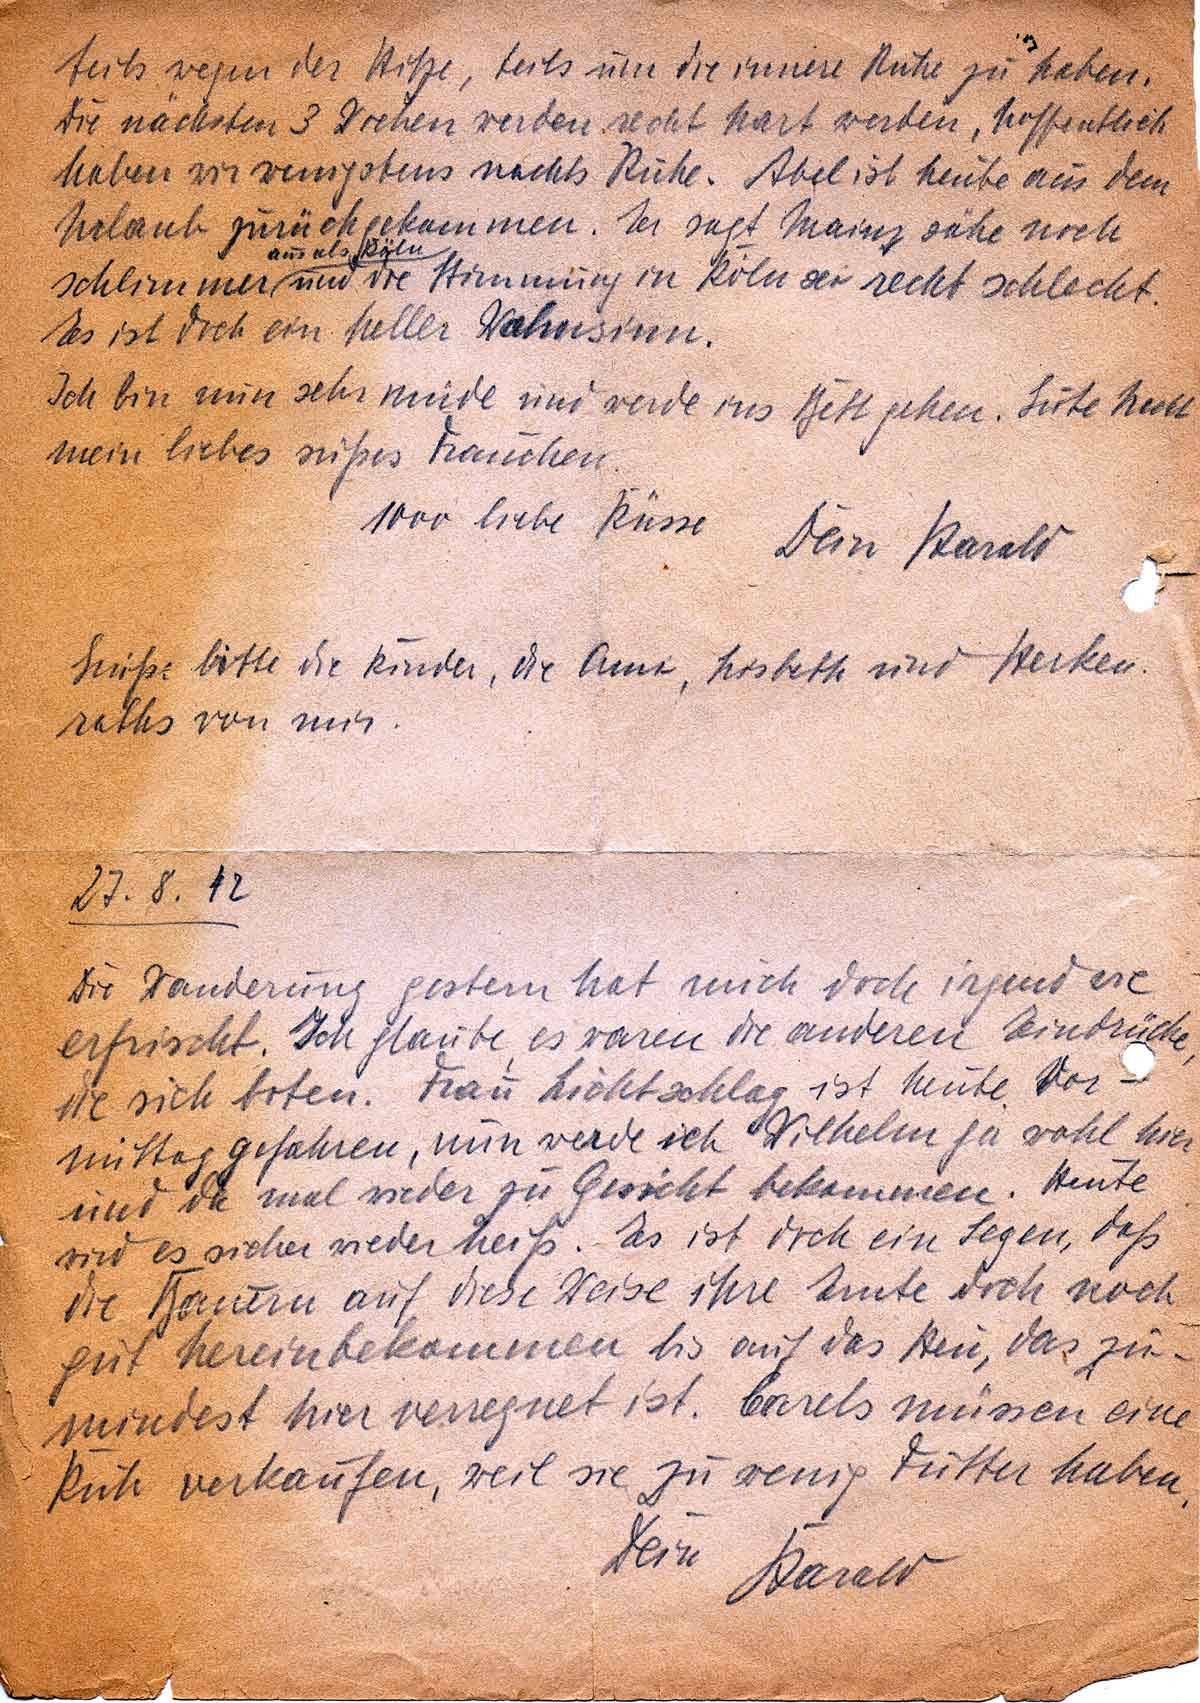 teils wegen der Hitze, teils um die innere Ruhe zu haben.
Die nächsten 3 Wochen werden recht hart werden, hoffentlich
haben wir wenigstens nachts Ruhe. Abel ist heute aus dem
Urlaub zurückgekommen. Er sagt Mainz sähe noch
aus als Köln
schlimmer und die Stimmung in Köln sei recht schlecht.
Es ist doch ein heller Wahnsinn.
Ich bin nun sehr müde und werde ins Bett gehen. Gute Nacht
mein liebes süßes Frauchen.
1000 liebe Küsse Dein Harald
Grüße bitte die Kinder, die Omi, Lisbeth und Herken-
raths von mir.
27. 8. 42
Die Wanderung gestern hat mich doch irgendwie
erfrischt. Ich glaube, es waren die anderen Eindrücke,
die sich boten. Frau Lichtschlag ist heute Vor-
mittag gefahren, nun werde ich Wilhelm ja wohl hier
und da mal wieder zu Gesicht bekommen. Heute
wird es sicher wieder heiß. Es ist doch ein Segen, daß
die Bauern auf diese Weise ihre Ernte doch noch
gut hereinbekommen bis auf das Heu, das zu-
mindest hier verregnet ist. Carels müssen eine
Kuh verkaufen, weil sie zu wenig Futter haben.
Dein Harald